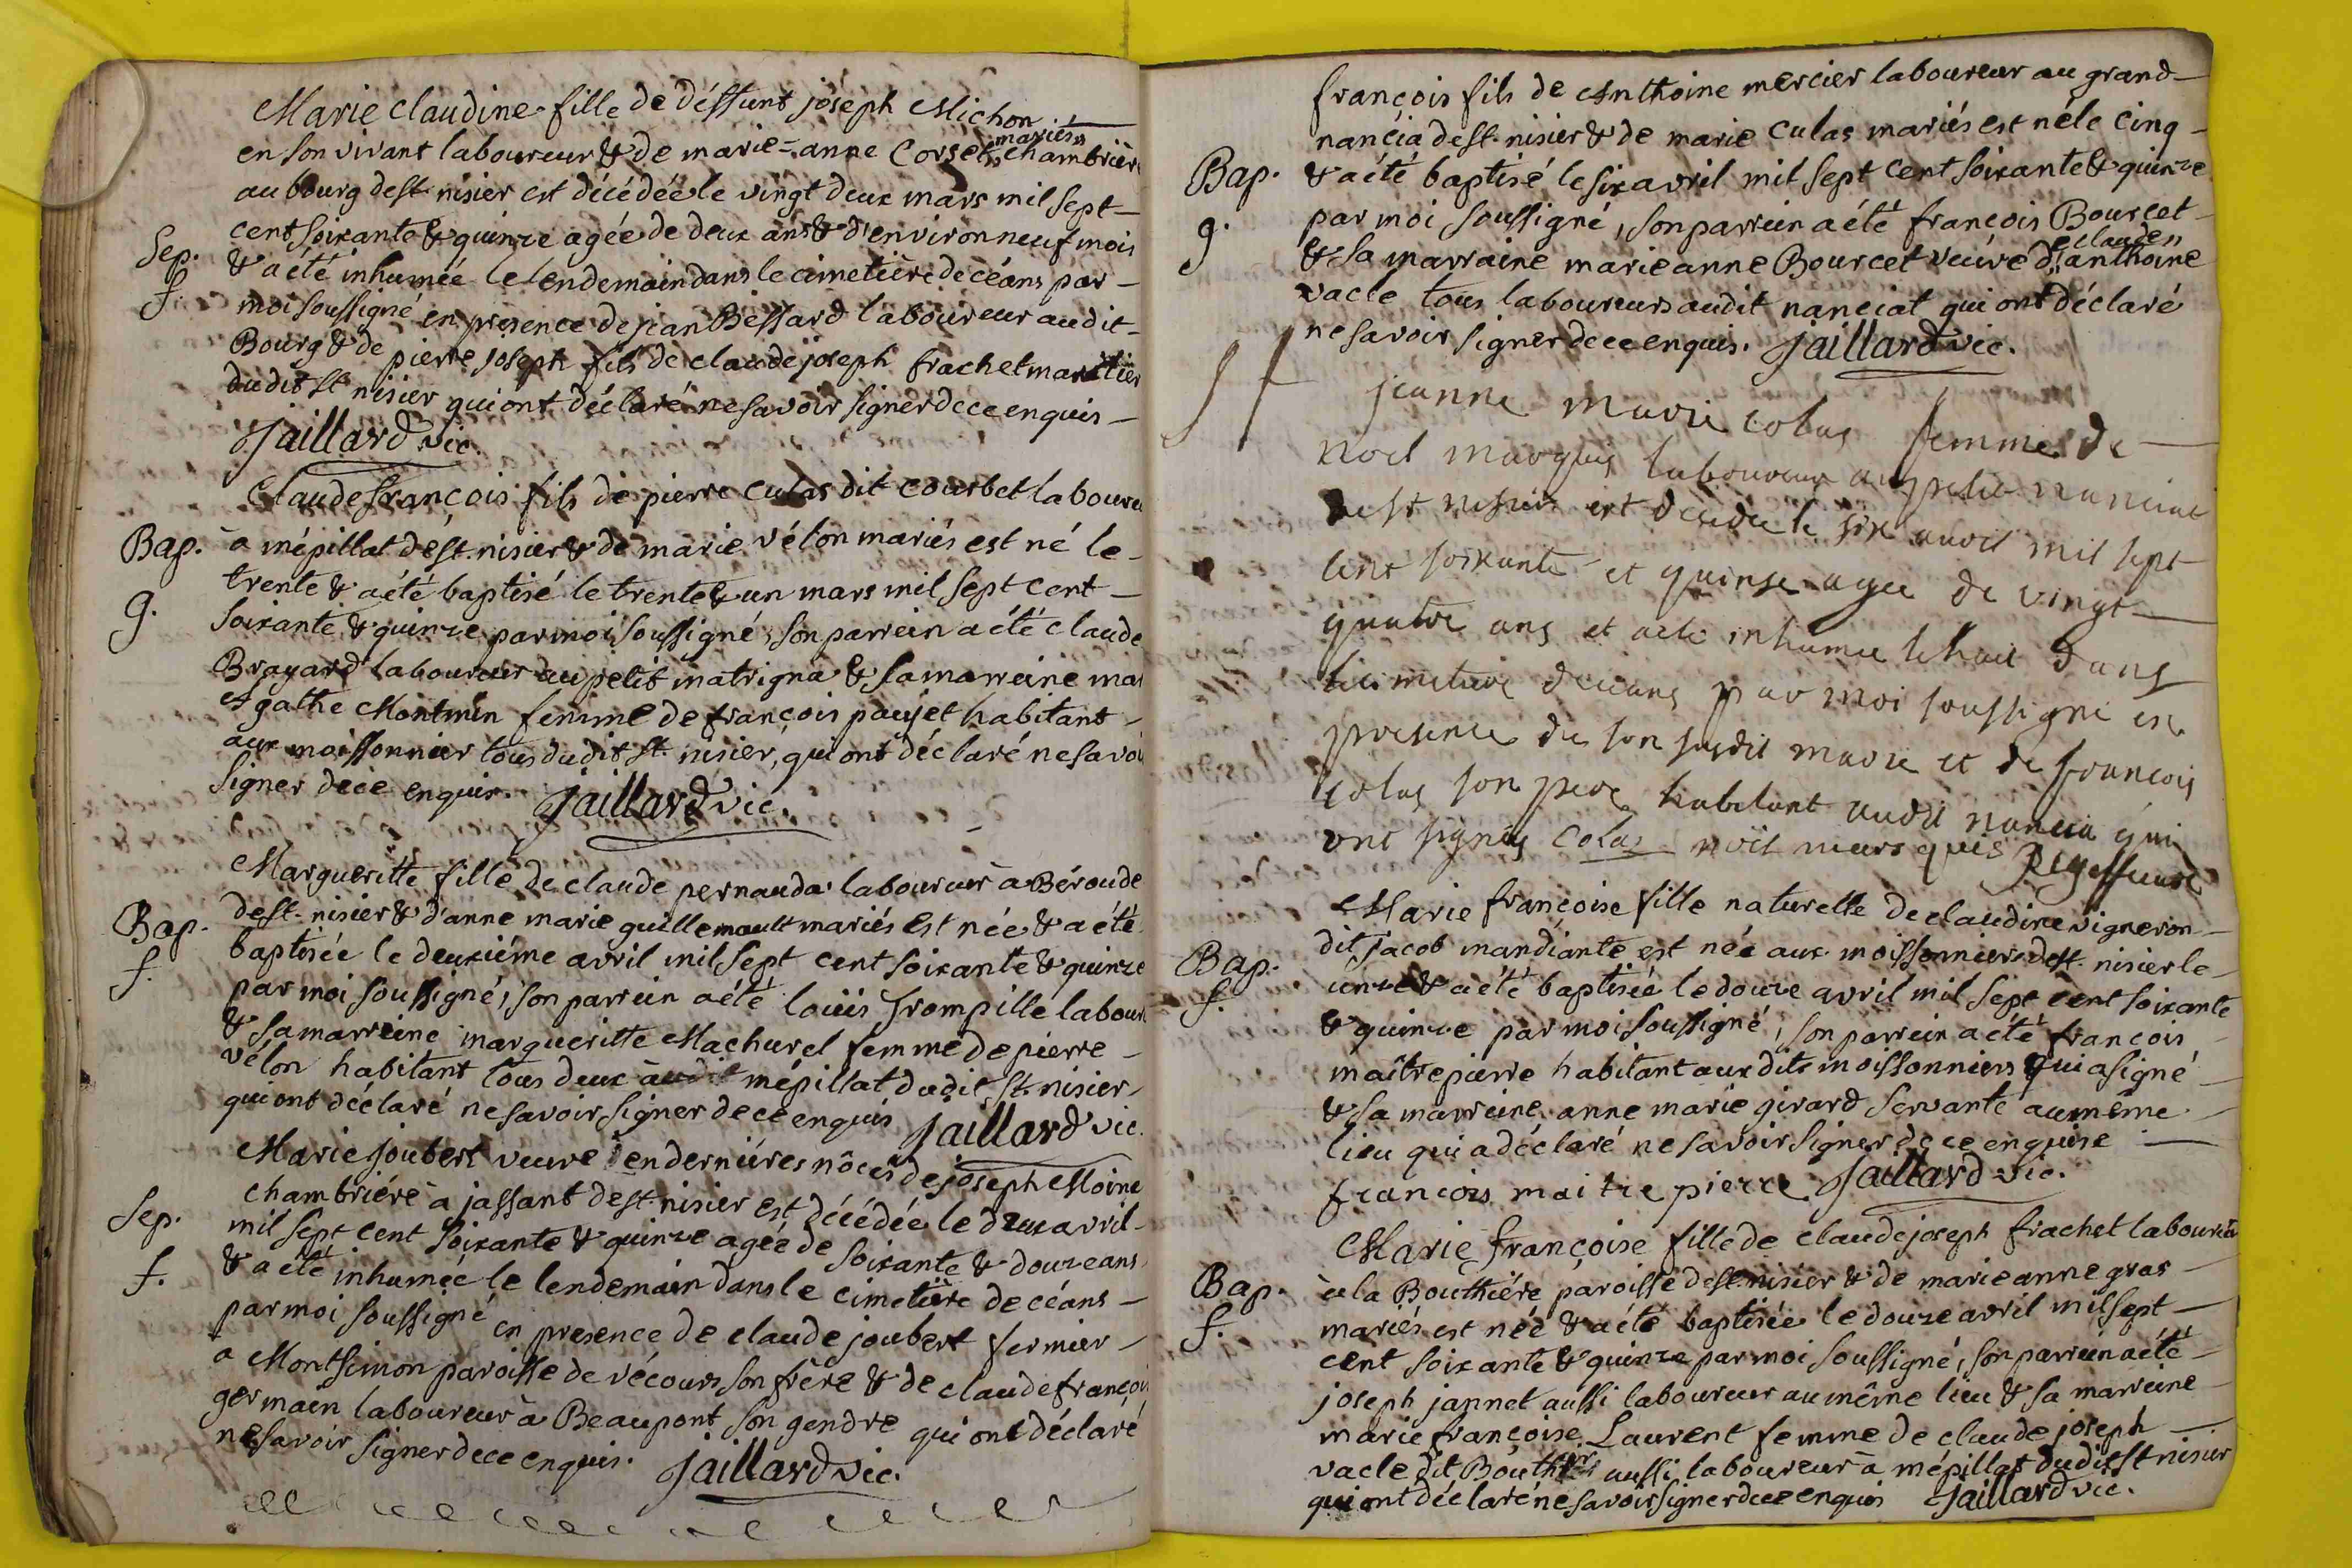 Marie claudine fille de déffunt joseph Michon
mariés
en son vivant laboureur & de marie-anne Corset chambrière
au bourg de st. nisier est décédée le vingt deux mars mil sept
cent soixante & quinze agée de deux ans & d'environ neuf mois
Sep.
& a été inhumée le lendemain dans le cimetière de céans par
f.
moi soussigné en presence de jean Bessard laboureur audit
Bourg & de pierre joseph fils de claude joseph frachet
dudit st nisier qui ont déclaré ne savoir signer de ce enquis
Jaillard vic.
Claude françois fils de pierre Culas dit Courbet laboure
Bap.
à mépillat de st. nisier & de marie vélon mariés est né le
trente & a été baptisé le trente & un mars mil sept cent
g.
soixante & quinze par moi soussigné, son parrein a été claude
Brayard laboureur au petit matrigna & sa marreine mar
Agathe Montmin femme de françois paujet habitant
aux moissonnier tous dudit st. nisier, qui ont déclaré ne savoi
signer de ce enquis. Jaillard vic.
Margueritte fille de claude pernauda laboureur à Béroude
Bap.
de st. nisier & d'anne marie guillemault mariés est née & a été
f.
baptisée le deuxiéme avril mil sept cent soixante & quinze
par moi soussigné, son parrein a été loüis Trompille labour
& sa marreine margueritte Machurel femme de pierre
vélon habitant tous deux mépillat dudit st. nisier
qui ont déclaré ne savoir signer de ce enquis Jaillard vic.
Marie joubert veuve en derniéres nôces de joseph Moine
chambriére à jassant de st. nisier est décédée le deux avril
Sep.
mil sept cent soixante & quinze agée de soixante & douze ans
f.
& a été inhumée le lendemain dans le cimetière de céans
par moi soussigné en presence de claude joubert fermier
à Montsimon paroisse de vécours son frère & de claude françoi
germain laboureur à Beaupont son gendre qui ont déclaré
ne savoir signer de ce enquis. Jaillard vic.
françois fils de Anthoine mercier laboureur au grand
nancia de st. nisier & de marie Culas mariés est né le cinq
Bap.
& a été baptisé le six avril mil sept cent soixante & quinze
g.
par moi soussigné, son parrein a été françois Bourcet
claude
& sa marraine marie anne Bourcet veuve d'anthoine
vacle tous laboureurs audit nanciat qui ont déclaré
ne savoir signer de ce enquis. Jaillard vic.
S f
jeanne marie colas femme de
noel marquis laboureur au petit nanciat
de st nisier est decedee le six avril mil sept
cent soixante et quinse agee de vingt
quatre ans et a ete inhumee le huit dans
le cimetiere de ceans par moi soussigné en
presence de son susdit marie et de francois
colas son pere habitant audit nancia qui
ont signés Colas noël marquis
Marie françoise fille naturelle de claudine vigneron
dit Jacob mandiante est née aux moissonniers de st. nisier le
Bap.
f.
onze & a été baptisée le douze avril mil sept cent soixante
& quinze par moi soussigné, son parrein a été françois
maitrepierre habitant aux dits moissonniers qui a signé
& sa marreine anne marie girard servante au même
lieu qui a déclaré ne savoir signer de ce enquise
francois maitre pierre Jaillard vic.
Marie françoise fille de claude joseph frachet laboureur
Bap.
à la Bouthiére paroisse de st. nisier & de marie anne gras
f.
mariés est née & a été baptisée le douze avril mil sept
cent soixante & quinze par moi soussigné, son parrein a été
joseph jannet aussi laboureur au même lieu & sa marreine
marie françoise Laurent femme de claude joseph
vacle dit aussi laboureur à mépillat dudit st nisier
qui ont déclaré ne savoir signer de ce enquis Jaillard vic.